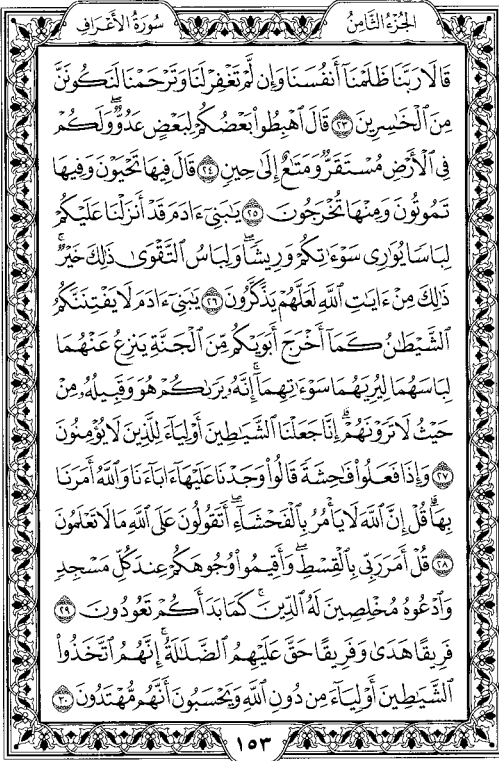 سُورَةُ الأَعْرَافِ
الجُزْءُ الثَّامِنُ
قَالَا رَبَّنَا ظَلَمْنَآ أَنفُسَنَا وَإِن لَّمْ تَغْفِرْ لَنَا وَتَرْحَمْنَا لَنَكُونَنَّ
مِنَ ٱلْخَٰسِرِينَ ٢٣ قَالَ ٱهْبِطُوا۟ بَعْضُكُمْ لِبَعْضٍ عَدُوٌّۖ وَلَكُمْ
فِى ٱلْأَرْضِ مُسْتَقَرٌّ وَمَتَٰعٌ إِلَىٰ حِينٍ ٢٤ قَالَ فِيهَا تَحْيَوْنَ وَفِيهَا
تَمُوتُونَ وَمِنْهَا تُخْرَجُونَ ٢٥ يَٰبَنِىٓ ءَادَمَ قَدْ أَنزَلْنَا عَلَيْكُمْ
لِبَاسًا يُوَٰرِى سَوْءَٰتِكُمْ وَرِيشًاۖ وَلِبَاسُ ٱلتَّقْوَىٰ ذَٰلِكَ خَيْرٌۚ
ذَٰلِكَ مِنْ ءَايَٰتِ ٱللَّهِ لَعَلَّهُمْ يَذَّكَّرُونَ ٢٦ يَٰبَنِىٓ ءَادَمَ لَا يَفْتِنَنَّكُمُ
ٱلشَّيْطَٰنُ كَمَآ أَخْرَجَ أَبَوَيْكُم مِّنَ ٱلْجَنَّةِ يَنزِعُ عَنْهُمَا
لِبَاسَهُمَا لِيُرِيَهُمَا سَوْءَٰتِهِمَآۗ إِنَّهُۥ يَرَىٰكُمْ هُوَ وَقَبِيلُهُۥ مِنْ
حَيْثُ لَا تَرَوْنَهُمْۗ إِنَّا جَعَلْنَا ٱلشَّيَٰطِينَ أَوْلِيَآءَ لِلَّذِينَ لَا يُؤْمِنُونَ
٢٧ وَإِذَا فَعَلُوا۟ فَٰحِشَةً قَالُوا۟ وَجَدْنَا عَلَيْهَآ ءَابَآءَنَا وَٱللَّهُ أَمَرَنَا
بِهَاۗ قُلْ إِنَّ ٱللَّهَ لَا يَأْمُرُ بِٱلْفَحْشَآءِۖ أَتَقُولُونَ عَلَى ٱللَّهِ مَا لَا تَعْلَمُونَ
٢٨ قُلْ أَمَرَ رَبِّى بِٱلْقِسْطِۖ وَأَقِيمُوا۟ وُجُوهَكُمْ عِندَ كُلِّ مَسْجِدٍ
وَٱدْعُوهُ مُخْلِصِينَ لَهُ ٱلدِّينَۚ كَمَا بَدَأَكُمْ تَعُودُونَ ٢٩
فَرِيقًا هَدَىٰ وَفَرِيقًا حَقَّ عَلَيْهِمُ ٱلضَّلَٰلَةُۗ إِنَّهُمُ ٱتَّخَذُوا۟
ٱلشَّيَٰطِينَ أَوْلِيَآءَ مِن دُونِ ٱللَّهِ وَيَحْسَبُونَ أَنَّهُم مُّهْتَدُونَ ٣٠
١٥٣